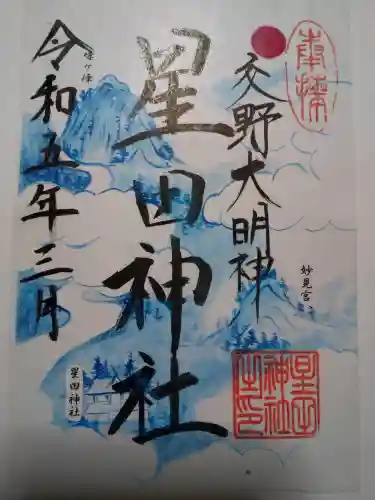 奉拝
交野大明神
妙見宮
星田神社
星田神社之印
令和五年三月
星田神社